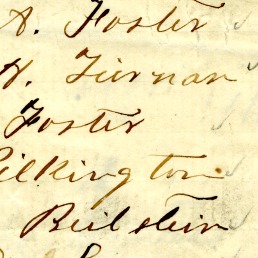 A. Foster
N. Tiernan
Foster
Pilkington
Beilstein